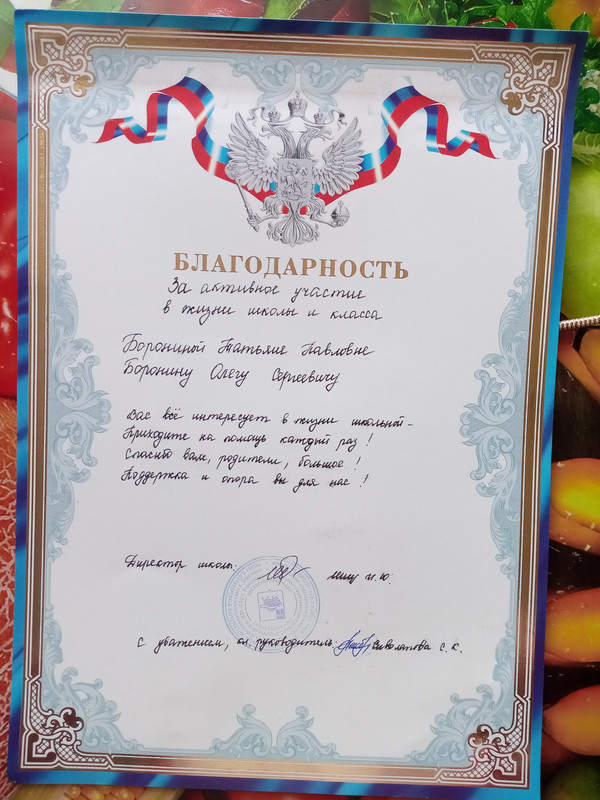 БЛАГОДАРНОСТЬ
За активное участие
в жизни школы и класса
Борониной Татьяне Павловне
Боронину Олегу Сергеевичу
Вас всё интересует в жизни школьной -
Приходите на помощь каждый раз!
Спасибо вам, родители, большое!
Поддержка и опора вы для нас!
Директор школы: И.Ю.
С уважением, кл. руководитель: С. К.